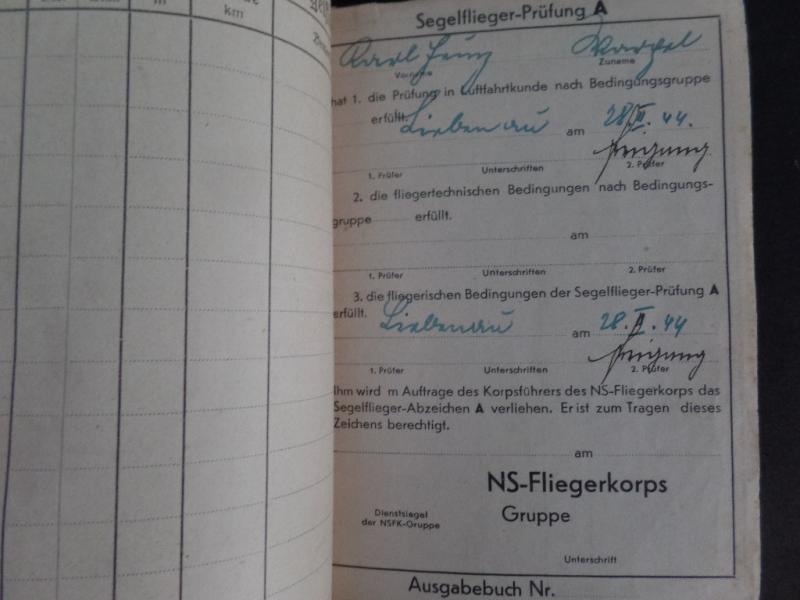 km
Segelflieger-Prüfung A
Karl Heinz
Vorname Zuname
hat 1. die Prüfung in Luftfahrtkunde nach Bedingungsgruppe
erfüllt. Liebenau am 28. . 44.
1. Prüfer Unterschriften 2. Prüfer
2. die fliegertechnischen Bedingungen nach Bedingungs-
gruppe erfüllt.
am
1. Prüfer Unterschriften 2. Prüfer
3. die fliegerischen Bedingungen der Segelflieger-Prüfung A
erfüllt. Liebenau am 28. . 44
1. Prüfer Unterschriften 2. Prüfer
Ihm wird m Auftrage des Korpsführers des NS-Fliegerkorps das
Segelflieger-Abzeichen A verliehen. Er ist zum Tragen dieses
Zeichens berechtigt.
am
NS-Fliegerkorps
Dienstsiegel
der NSFK-Gruppe
Gruppe
Unterschrift
Ausgabebuch Nr.